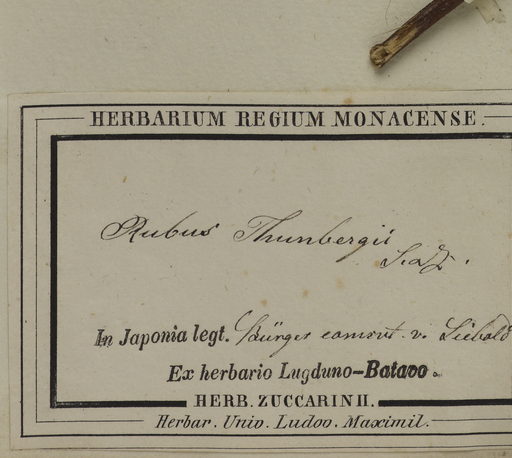 HERBARIUM REGIUM MONACENSE.
Rubus Thunbergii
S. & Z.
In Japonia legt. Bürger comm. v. Siebold
Ex herbario Lugduno-Batavo.
HERB. ZUCCARINII.
Herbar. Univ. Ludov. Maximil.